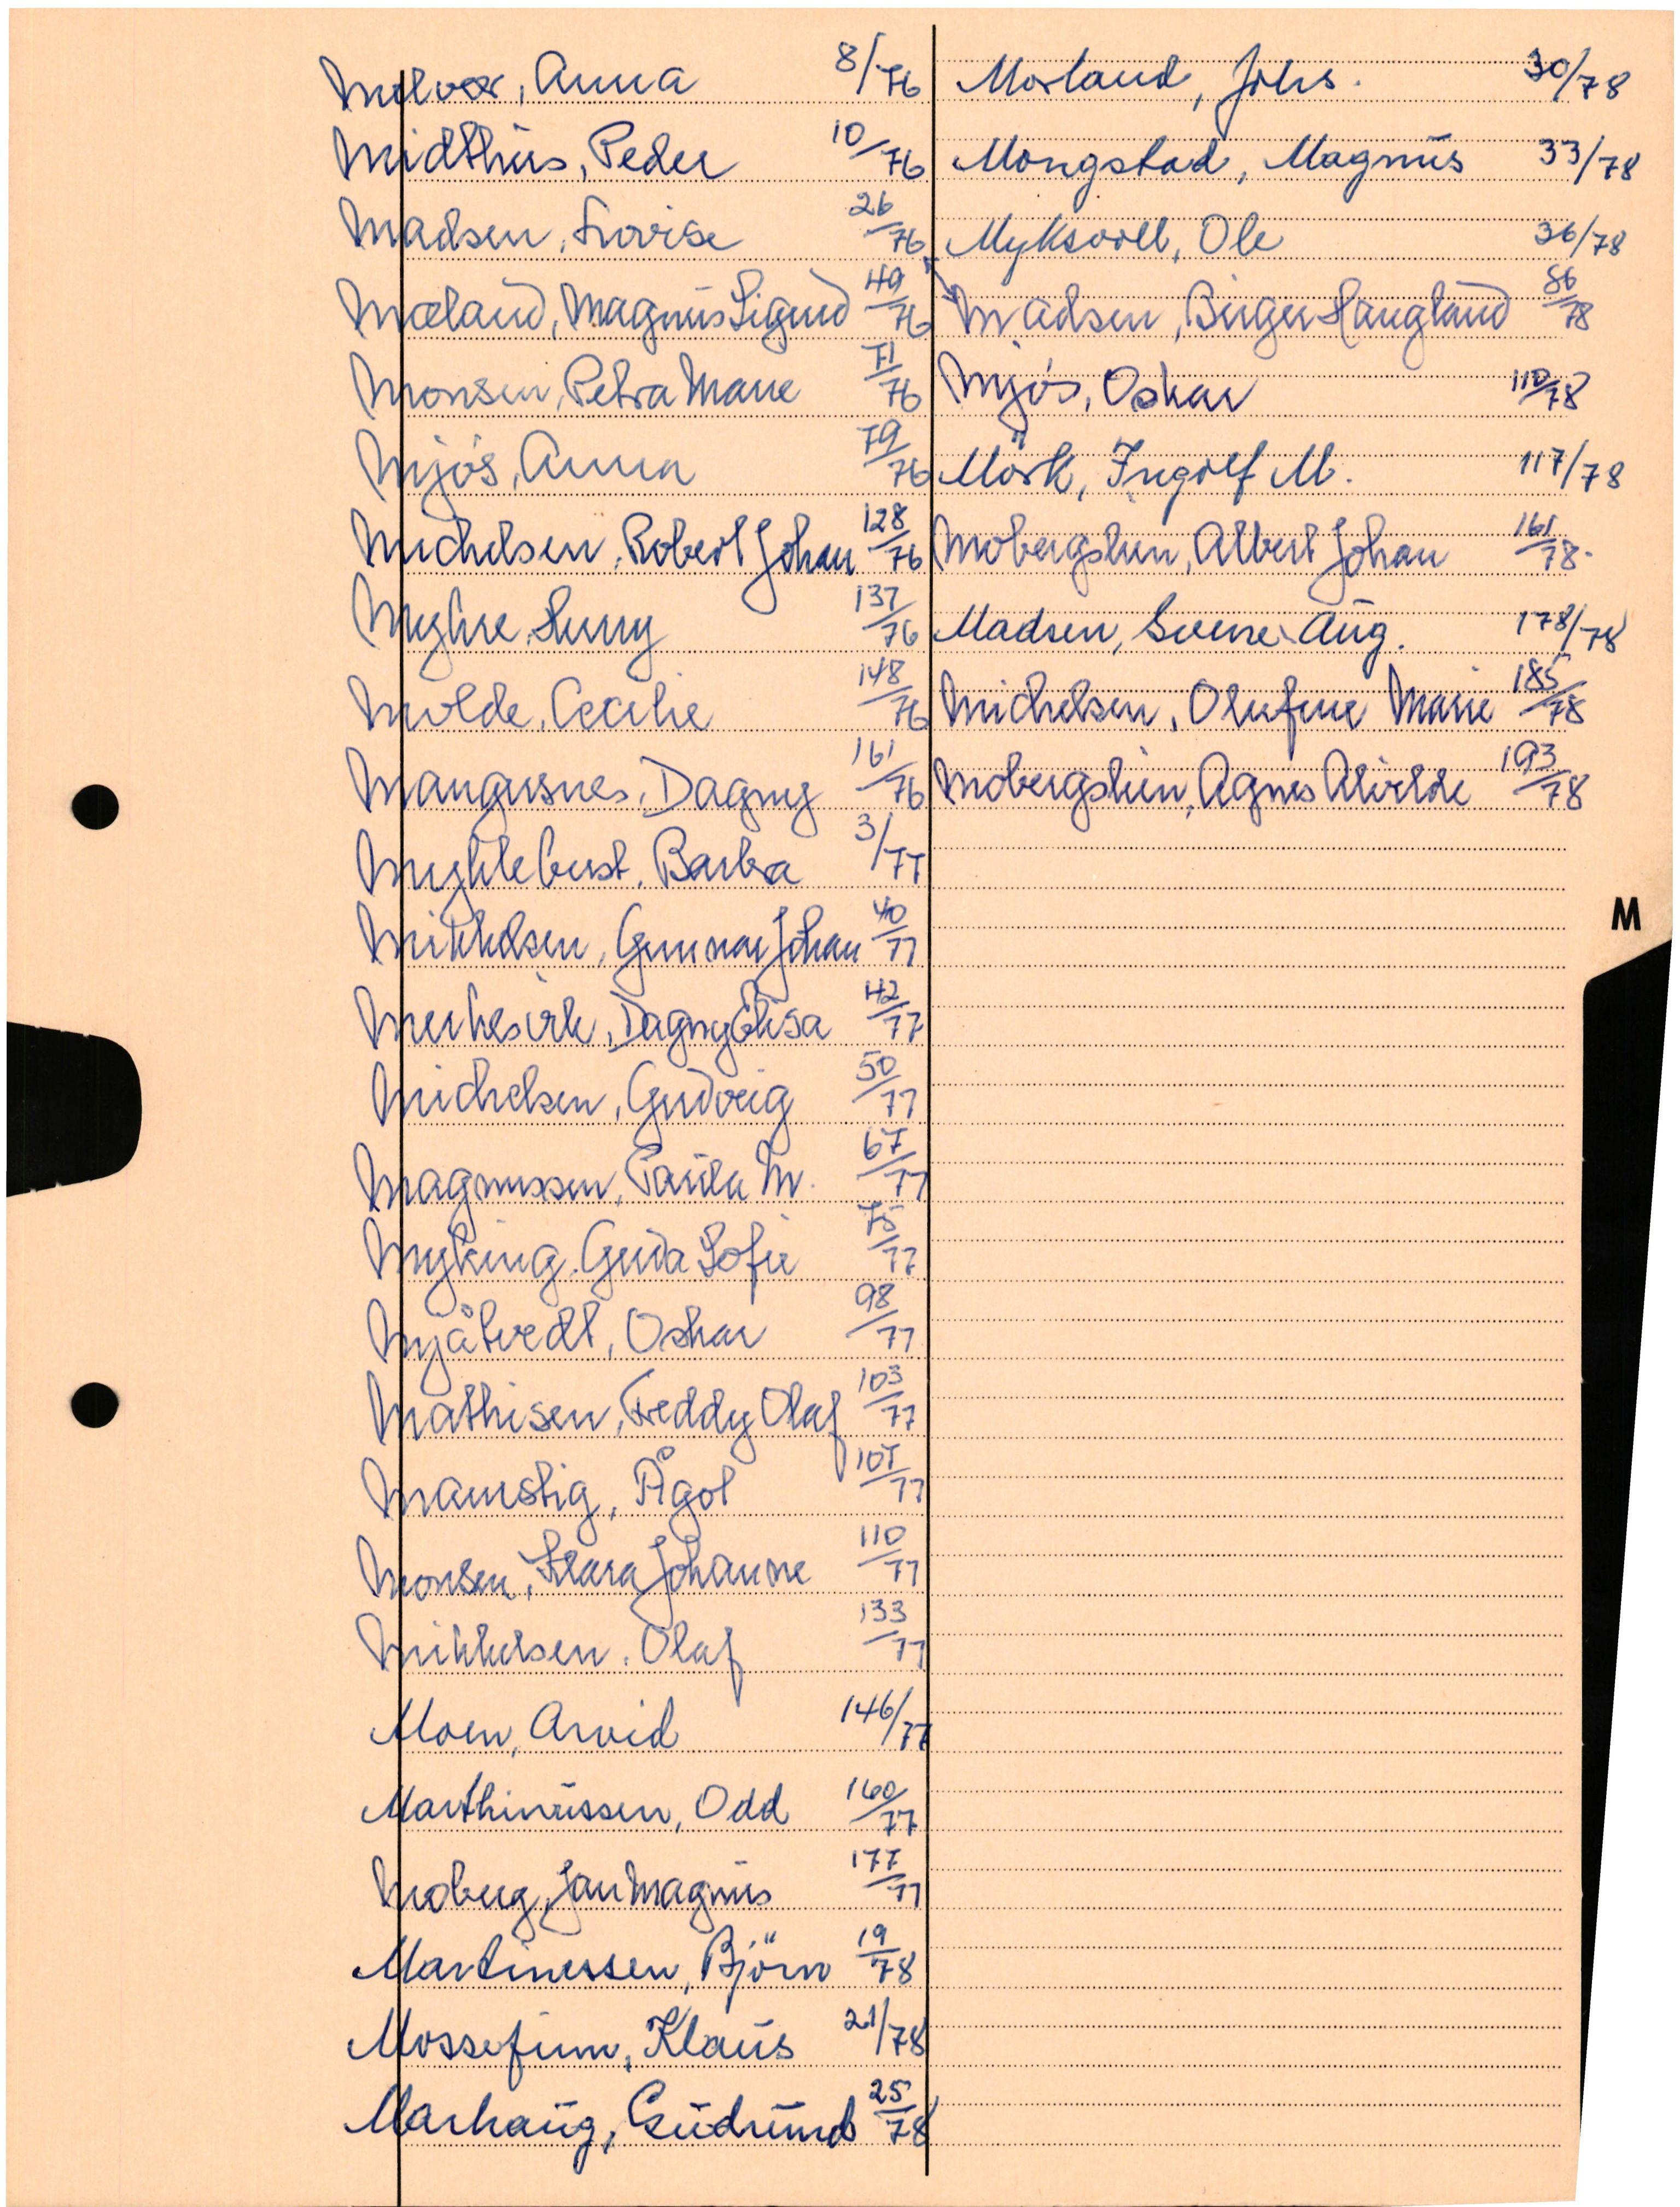 Melvær, Anna 8/76
Midthus, Peder 10/76
Madsen, Lovise 26/76
Mæland, Magnus Sigurd 49/76
Monsen, Petra Marie 71/76
Mjós, Anna 79/76
Michelsen, Robert Johan 128/76
Myhre, Jenny 137/76
Molde, Cecilie 148/76
Mangersnes, Dagny 161/76
Myklebust, Barbra 3/77
Mikkelsen, Gunnar Johan 40/77
Merkesvik, Dagny Elisa 42/77
Michelsen, Gudveig 50/77
Magnussen, Paula M. 67/77
Myking, Guda Sofie 75/77
Mjåtvedt, Oskar 98/77
Mathisen, Freddy Olaf 103/77
Ågot 107/77
Monsen, Klara Johanne 110/77
Mikkelsen, Olaf 133/77
Moen, Arvid 146/77
Marthinussen, Odd 160/77
Moberg, Jan Magnus 177/77
Martinessen, Björn 19/78
Mossefinn, Klaus 21/78
Marhaug, Gudmund 25/78
Morland, Johs. 30/78
Mongstad, Magnus 33/78
Myksvoll, Ole 36/78
Madsen, Birger Haugland 86/78
Mjós, Oskar 110/78
Mörk, Ingolf M. 117/78
Mobergslien, Albert Johan 161/78
Madsen, Sverre Aug. 178/78
Michelsen, Olufine Marie 185/78
Mobergslien, Agnes Alvilde 193/78
M